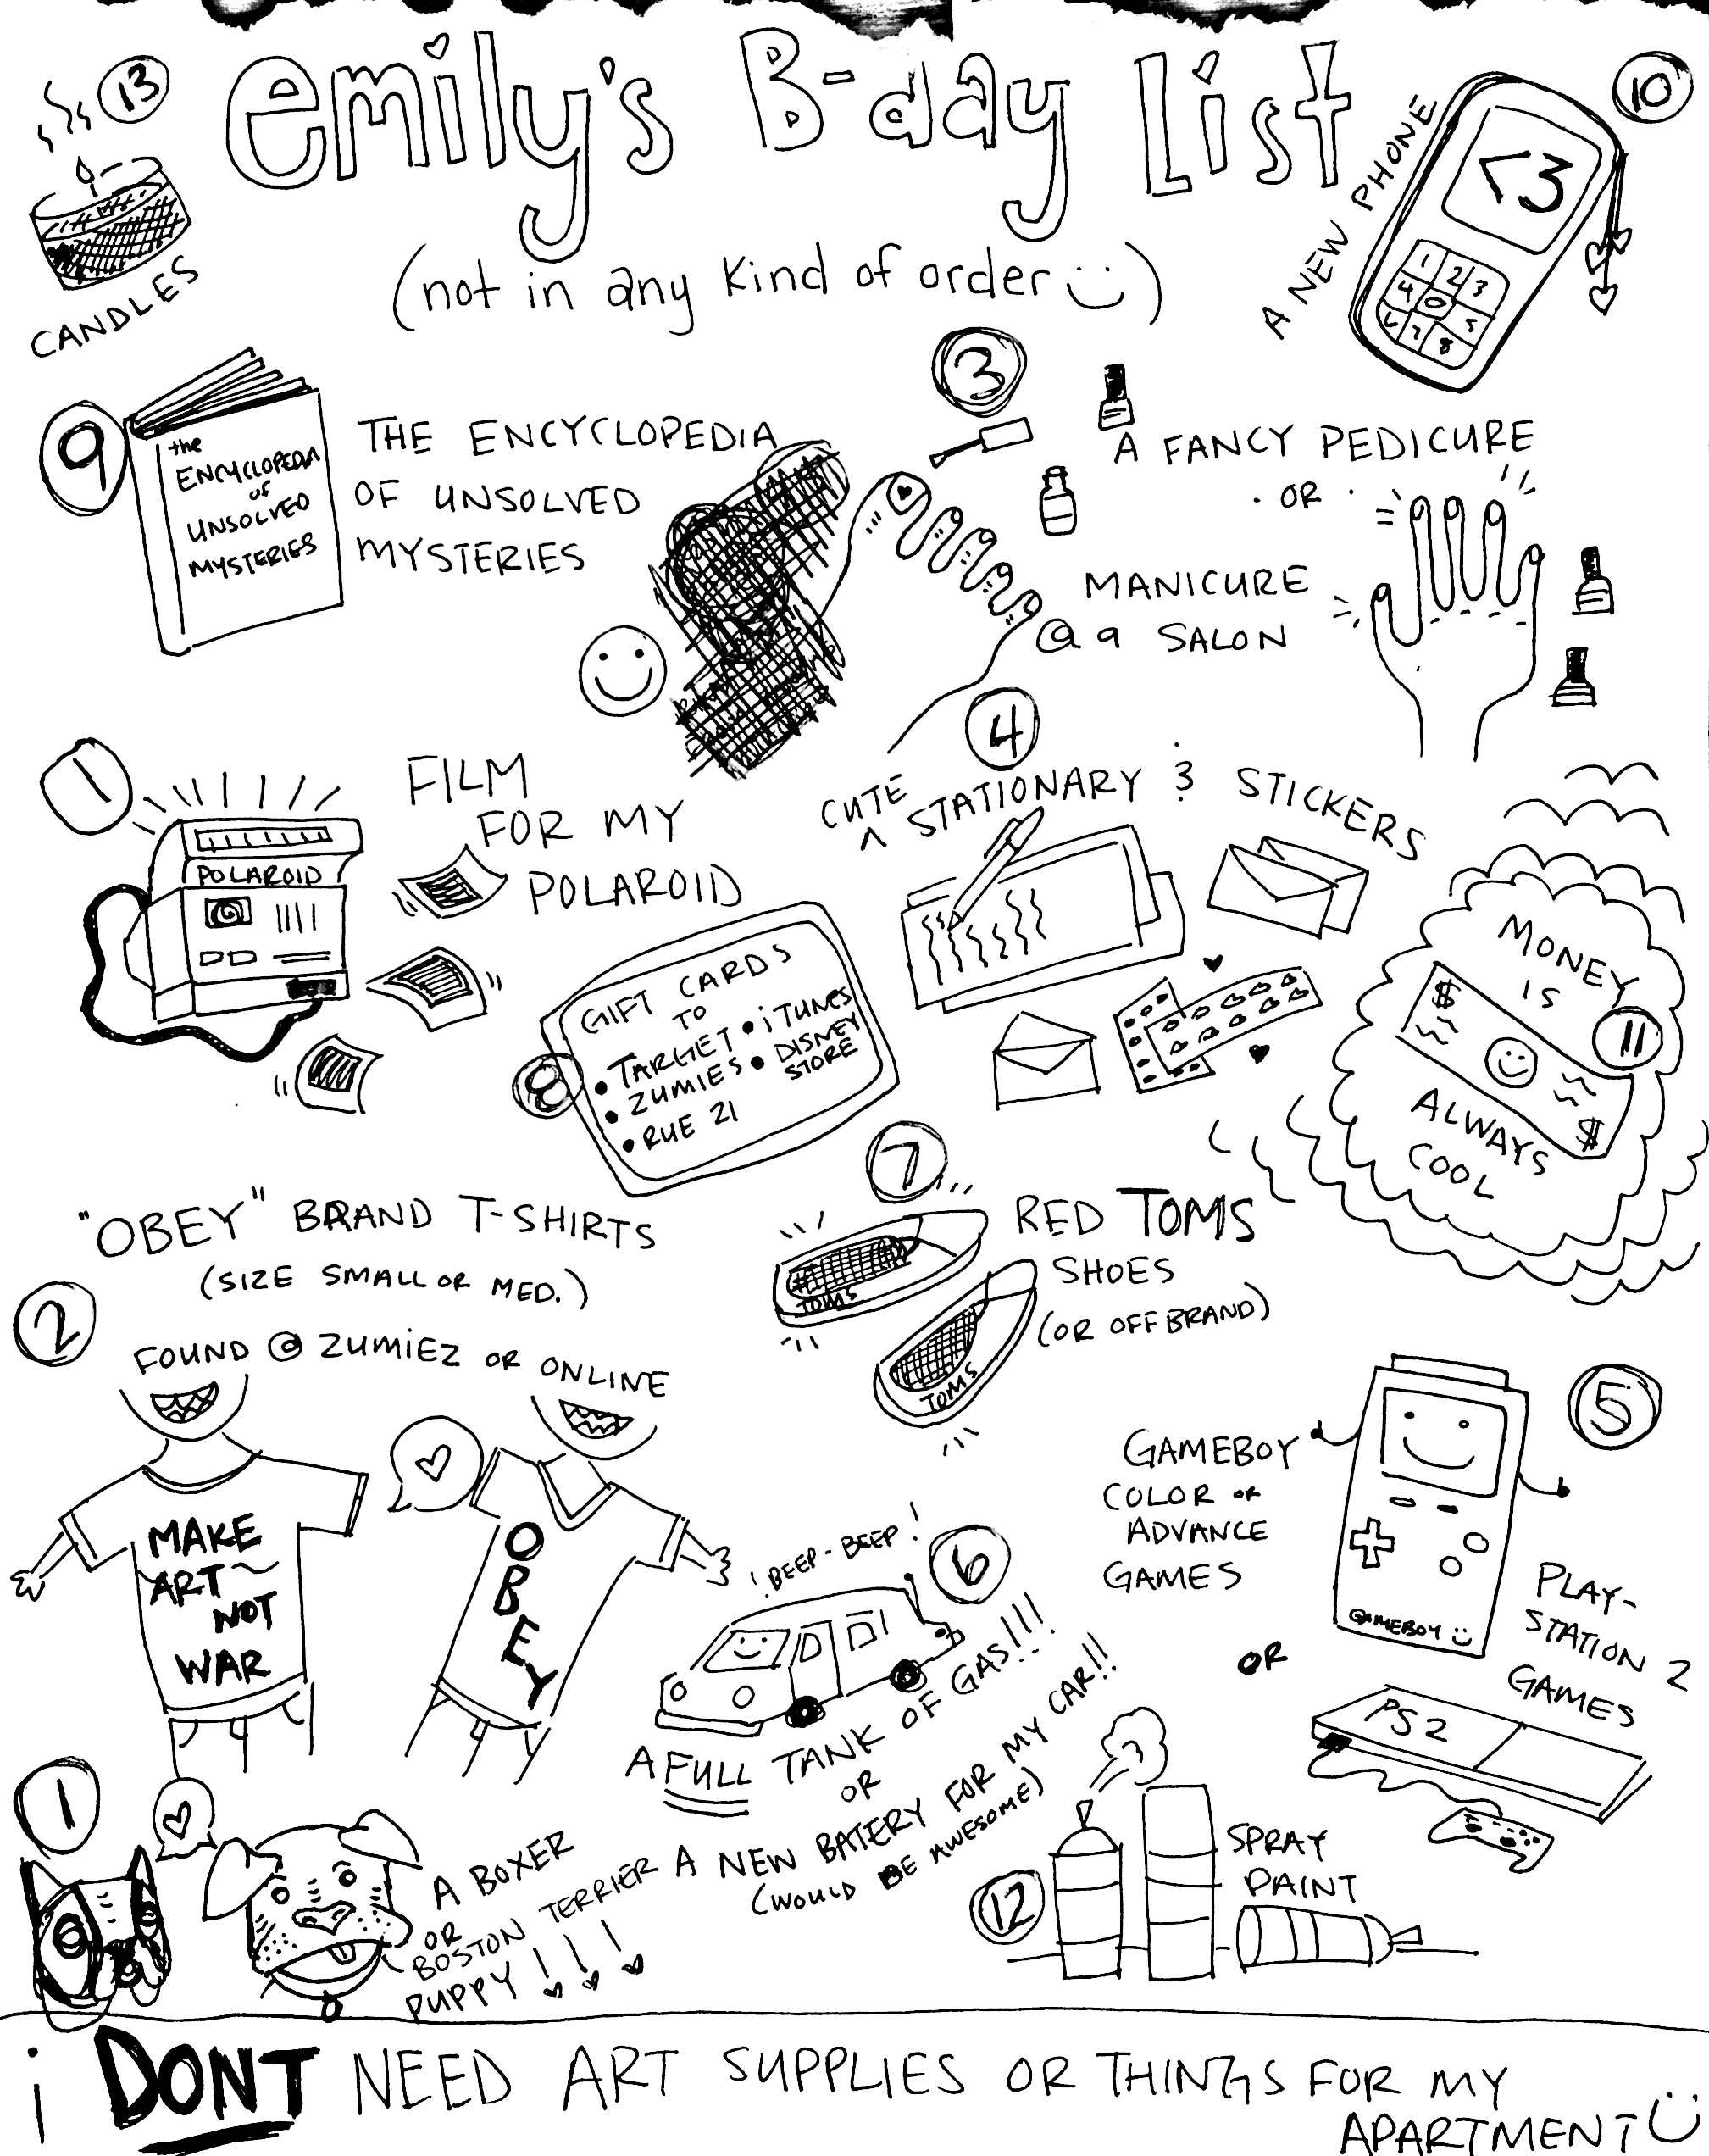 emily's B-day List
(not in any kind of order :))
13
CANDLES
10
A NEW PHONE
<3
1 2 3
4 0 5
6 7 8
9
the
ENCYCLOPEDIA
of
UNSOLVED
MYSTERIES
THE ENCYCLOPEDIA
OF UNSOLVED
MYSTERIES
3
A FANCY PEDICURE
. OR .
MANICURE
@ a SALON
1
POLAROID
FILM
FOR MY
POLAROID
4
CUTE
^ STATIONARY & STICKERS
8
GIFT CARDS
TO
• TARGET
• ZUMIES
• RUE 21
• iTUNES
• DISNEY
STORE
MONEY
IS
11
$
$
ALWAYS
COOL
"OBEY" BRAND T-SHIRTS
(SIZE SMALL OR MED.)
2
FOUND @ ZUMIEZ OR ONLINE
MAKE
ART
NOT
WAR
OBEY
7
RED TOMS
SHOES
(OR OFF BRAND)
TOMS
TOMS
5
GAMEBOY
COLOR OR
ADVANCE
GAMES
GAMEBOY :)
OR
PLAY-
STATION 2
GAMES
PS2
6
! BEEP-BEEP!
A FULL TANK OF GAS!!!
OR
A NEW BATERY FOR MY CAR!!
(WOULD BE AWESOME)
1
A BOXER
OR
BOSTON TERRIER
PUPPY!!!
12
SPRAY
PAINT
i DONT NEED ART SUPPLIES OR THINGS FOR MY
APARTMENT :)